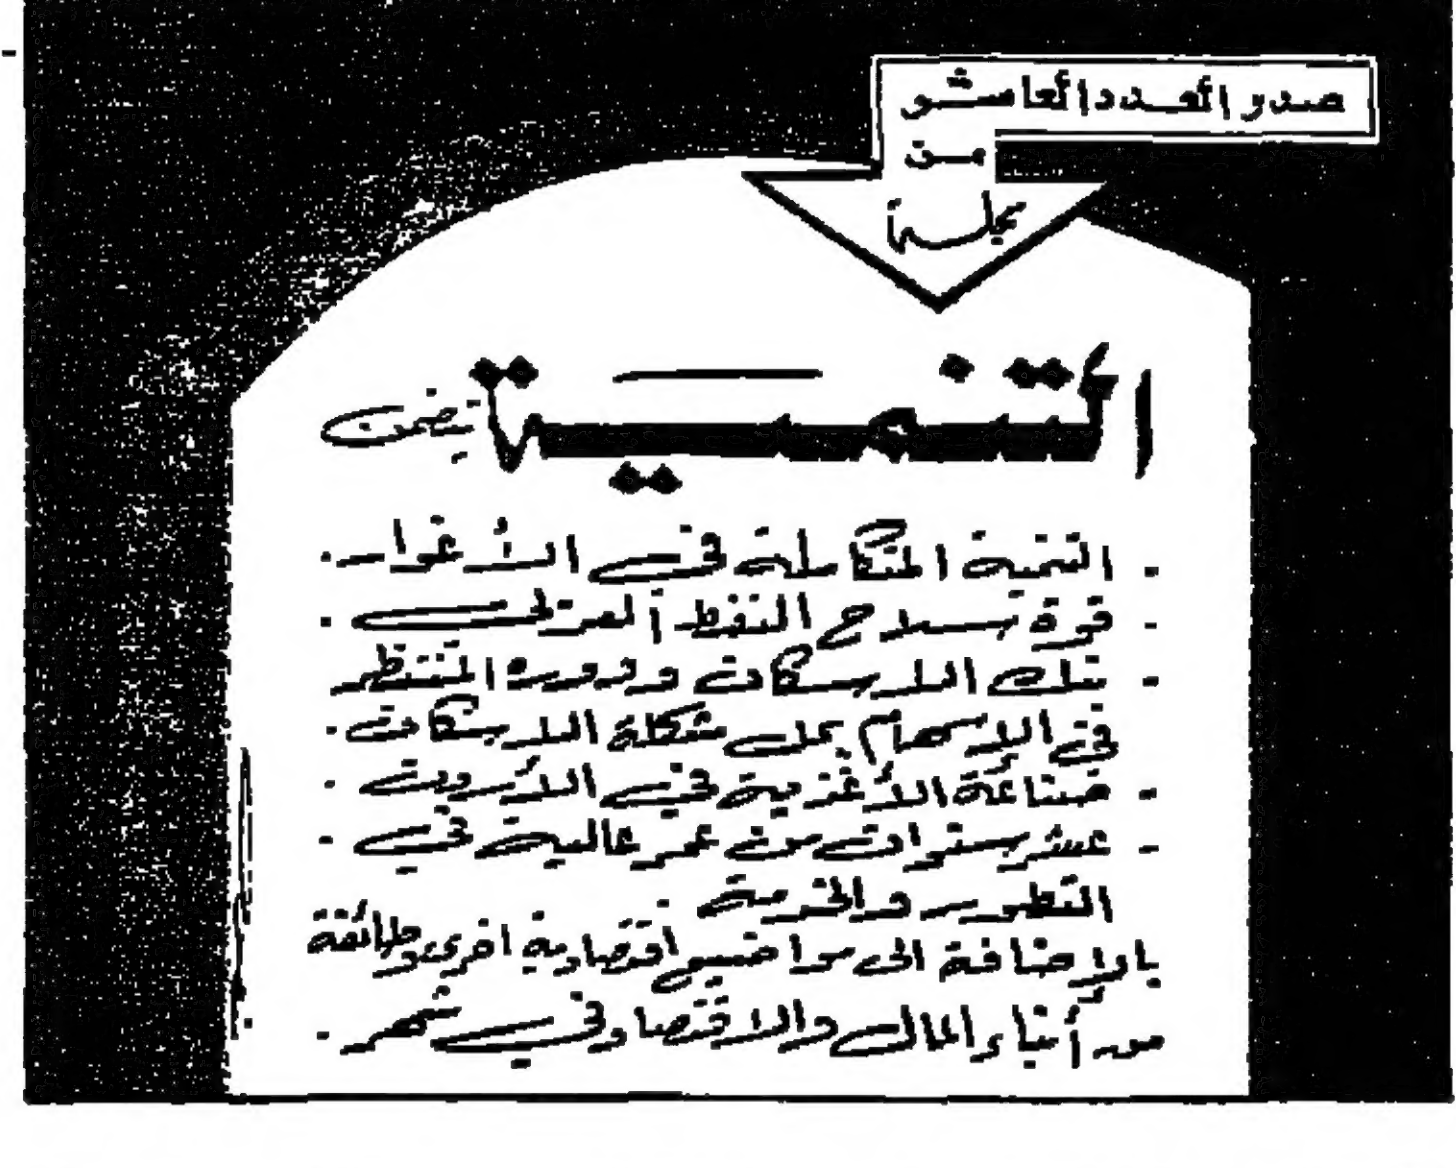 صدر العدد العاشر
من
مجلة
التنمية يتضمن
- التنمية المتكاملة في الأغوار .
- قوة سلاح النفط العربي .
- بنك الاسكان ودوره المنتظر
في الاسهام بحل مشكلة الاسكان .
- صناعة الأغذية في الأردن .
- عشر سنوات من عمر عالية في .
التطوير والخدمة .
بالإضافة الى مواضيع اقتصادية اخرى وطائفة
من أنباء المال والاقتصاد في شهر .